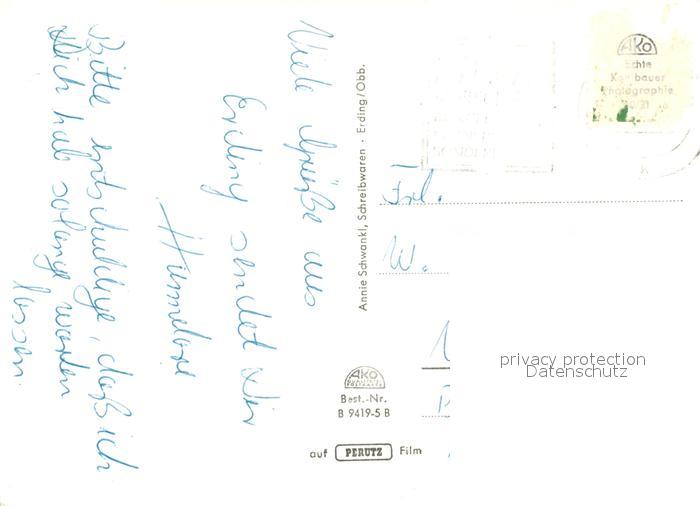 Viele Grüße aus
Erding sendet Dir
Hannelore
Bitte entschuldige, daß ich
Dich hab solange warten
lassen.
Annie Schwankl, Schreibwaren · Erding/Obb.
AKO
Echte
Photographie
Frl.
W.
AKO
Best.-Nr.
B 9419-5 B
auf PERUTZ Film
privacy protection
Datenschutz